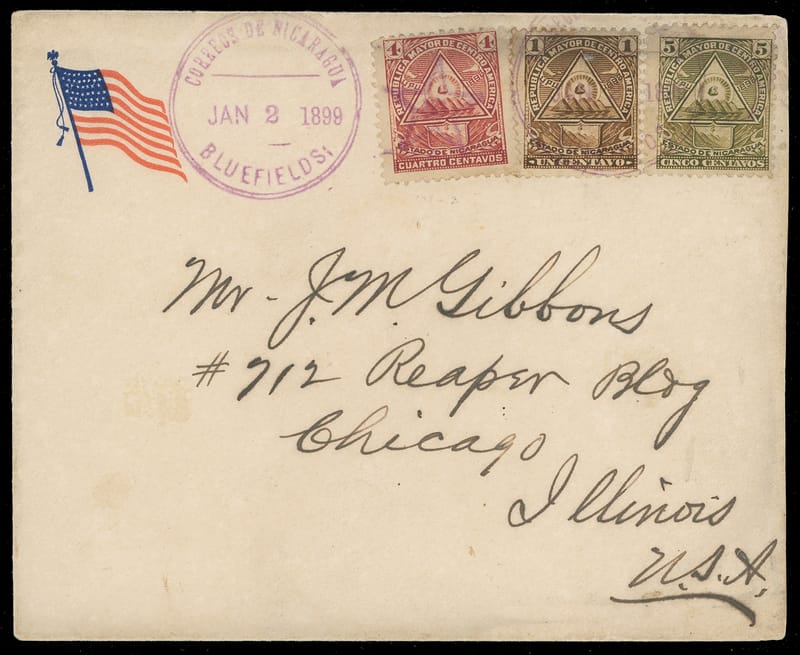 CORREOS DE NICARAGUA
JAN 2 1899
BLUEFIELDS
4 4
REPUBLICA MAYOR DE CENTRO AMERICA
ESTADO DE NICARAGUA
CUARTRO CENTAVOS
1 1
REPUBLICA MAYOR DE CENTRO AMERICA
ESTADO DE NICARAGUA
UN CENTAVO
5 5
REPUBLICA MAYOR DE CENTRO AMERICA
ESTADO DE NICARAGUA
CINCO CENTAVOS
Mr - J. M Gibbons
# 712 Reaper Bldg
Chicago
Illinois
U.S.A.